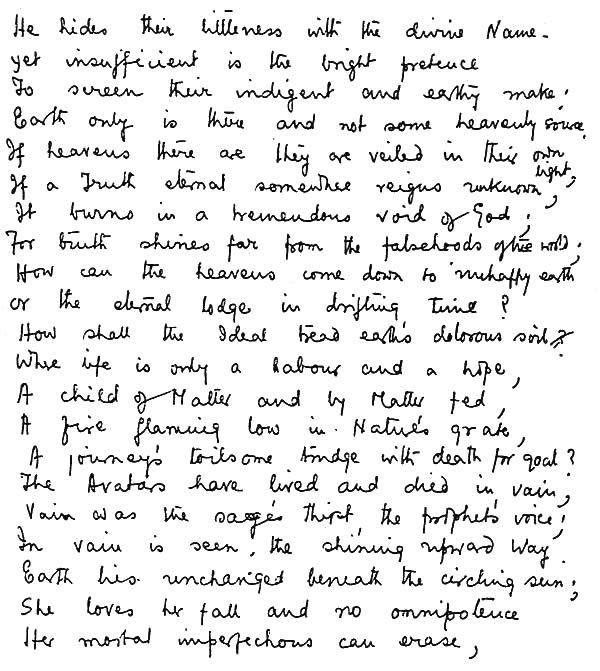 He hides their littleness with the divine Name.
yet insufficient is the bright pretence
To screen their indigent and earthy make;
Earth only is there and not some heavenly source.
If heavens there are they are veiled in their own light,
If a Truth eternal somewhere reigns unknown,
It burns in a tremendous void of God;
For truth shines far from the falsehoods of the world;
How can the heavens come down to unhappy earth
or the eternal lodge in drifting time?
How shall the Ideal tread earth's dolorous soil?
Where life is only a labour and a hope,
A child of Matter and by Matter fed,
A fire flaming low in Nature's grate,
A journey's toilsome trudge with death for goal?
The Avatars have lived and died in vain,
Vain was the sage's thirst, the prophet's voice;
In vain is seen the shining upward Way.
Earth lies unchanged beneath the circling sun;
She loves her fall and no omnipotence
Her mortal imperfections can erase,